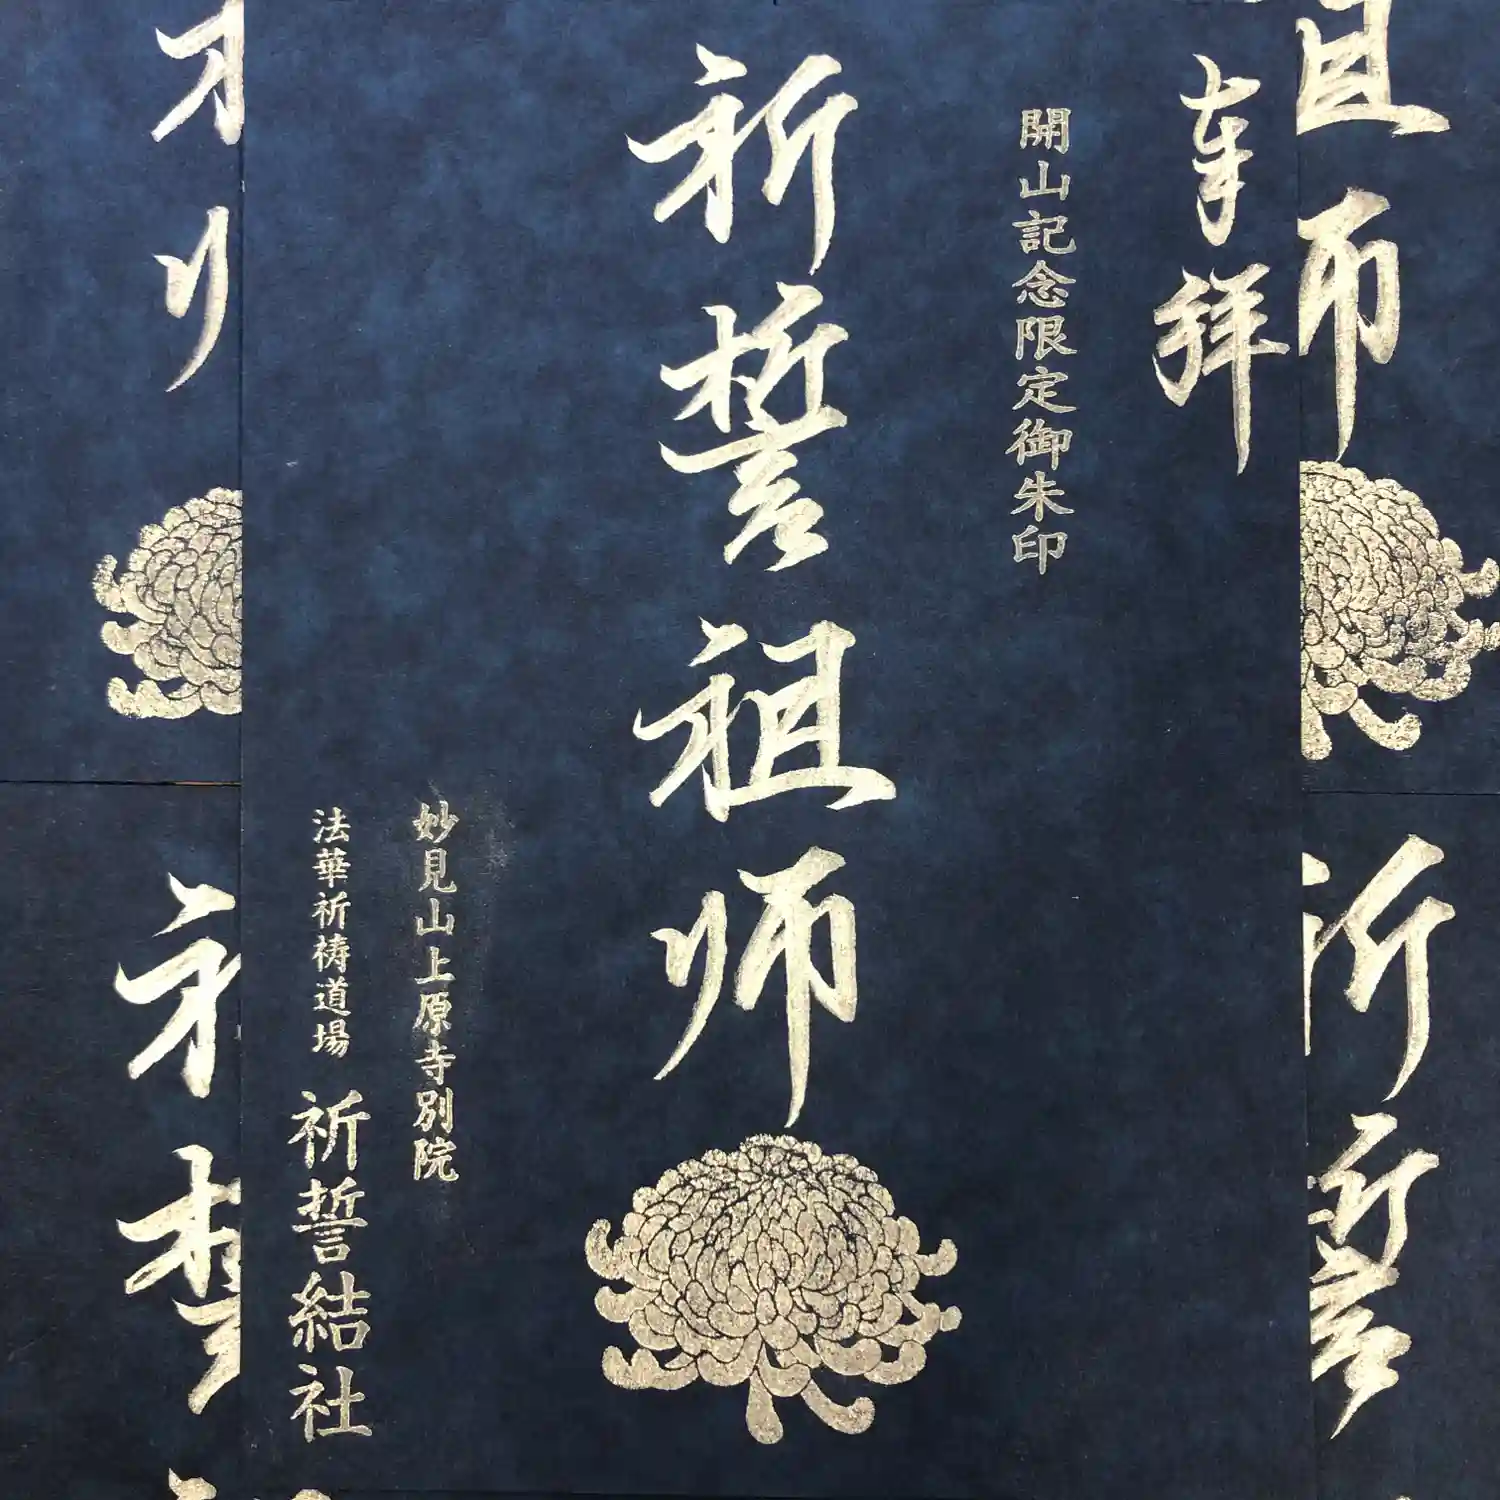 奉拝
開山記念限定御朱印
祈誓祖師
妙見山上原寺別院
法華祈祷道場
祈誓結社